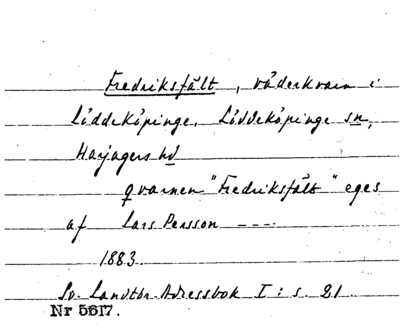 Fredriksfält, väderkvarn i
Löddeköpinge, Löddeköpinge sn,
Harjagers hd
qvarnen "Fredriksfält" eges
af Lars Persson ----.
1883.
Sv. Landtbr. Adressbok I: s. 21
Nr 5617.